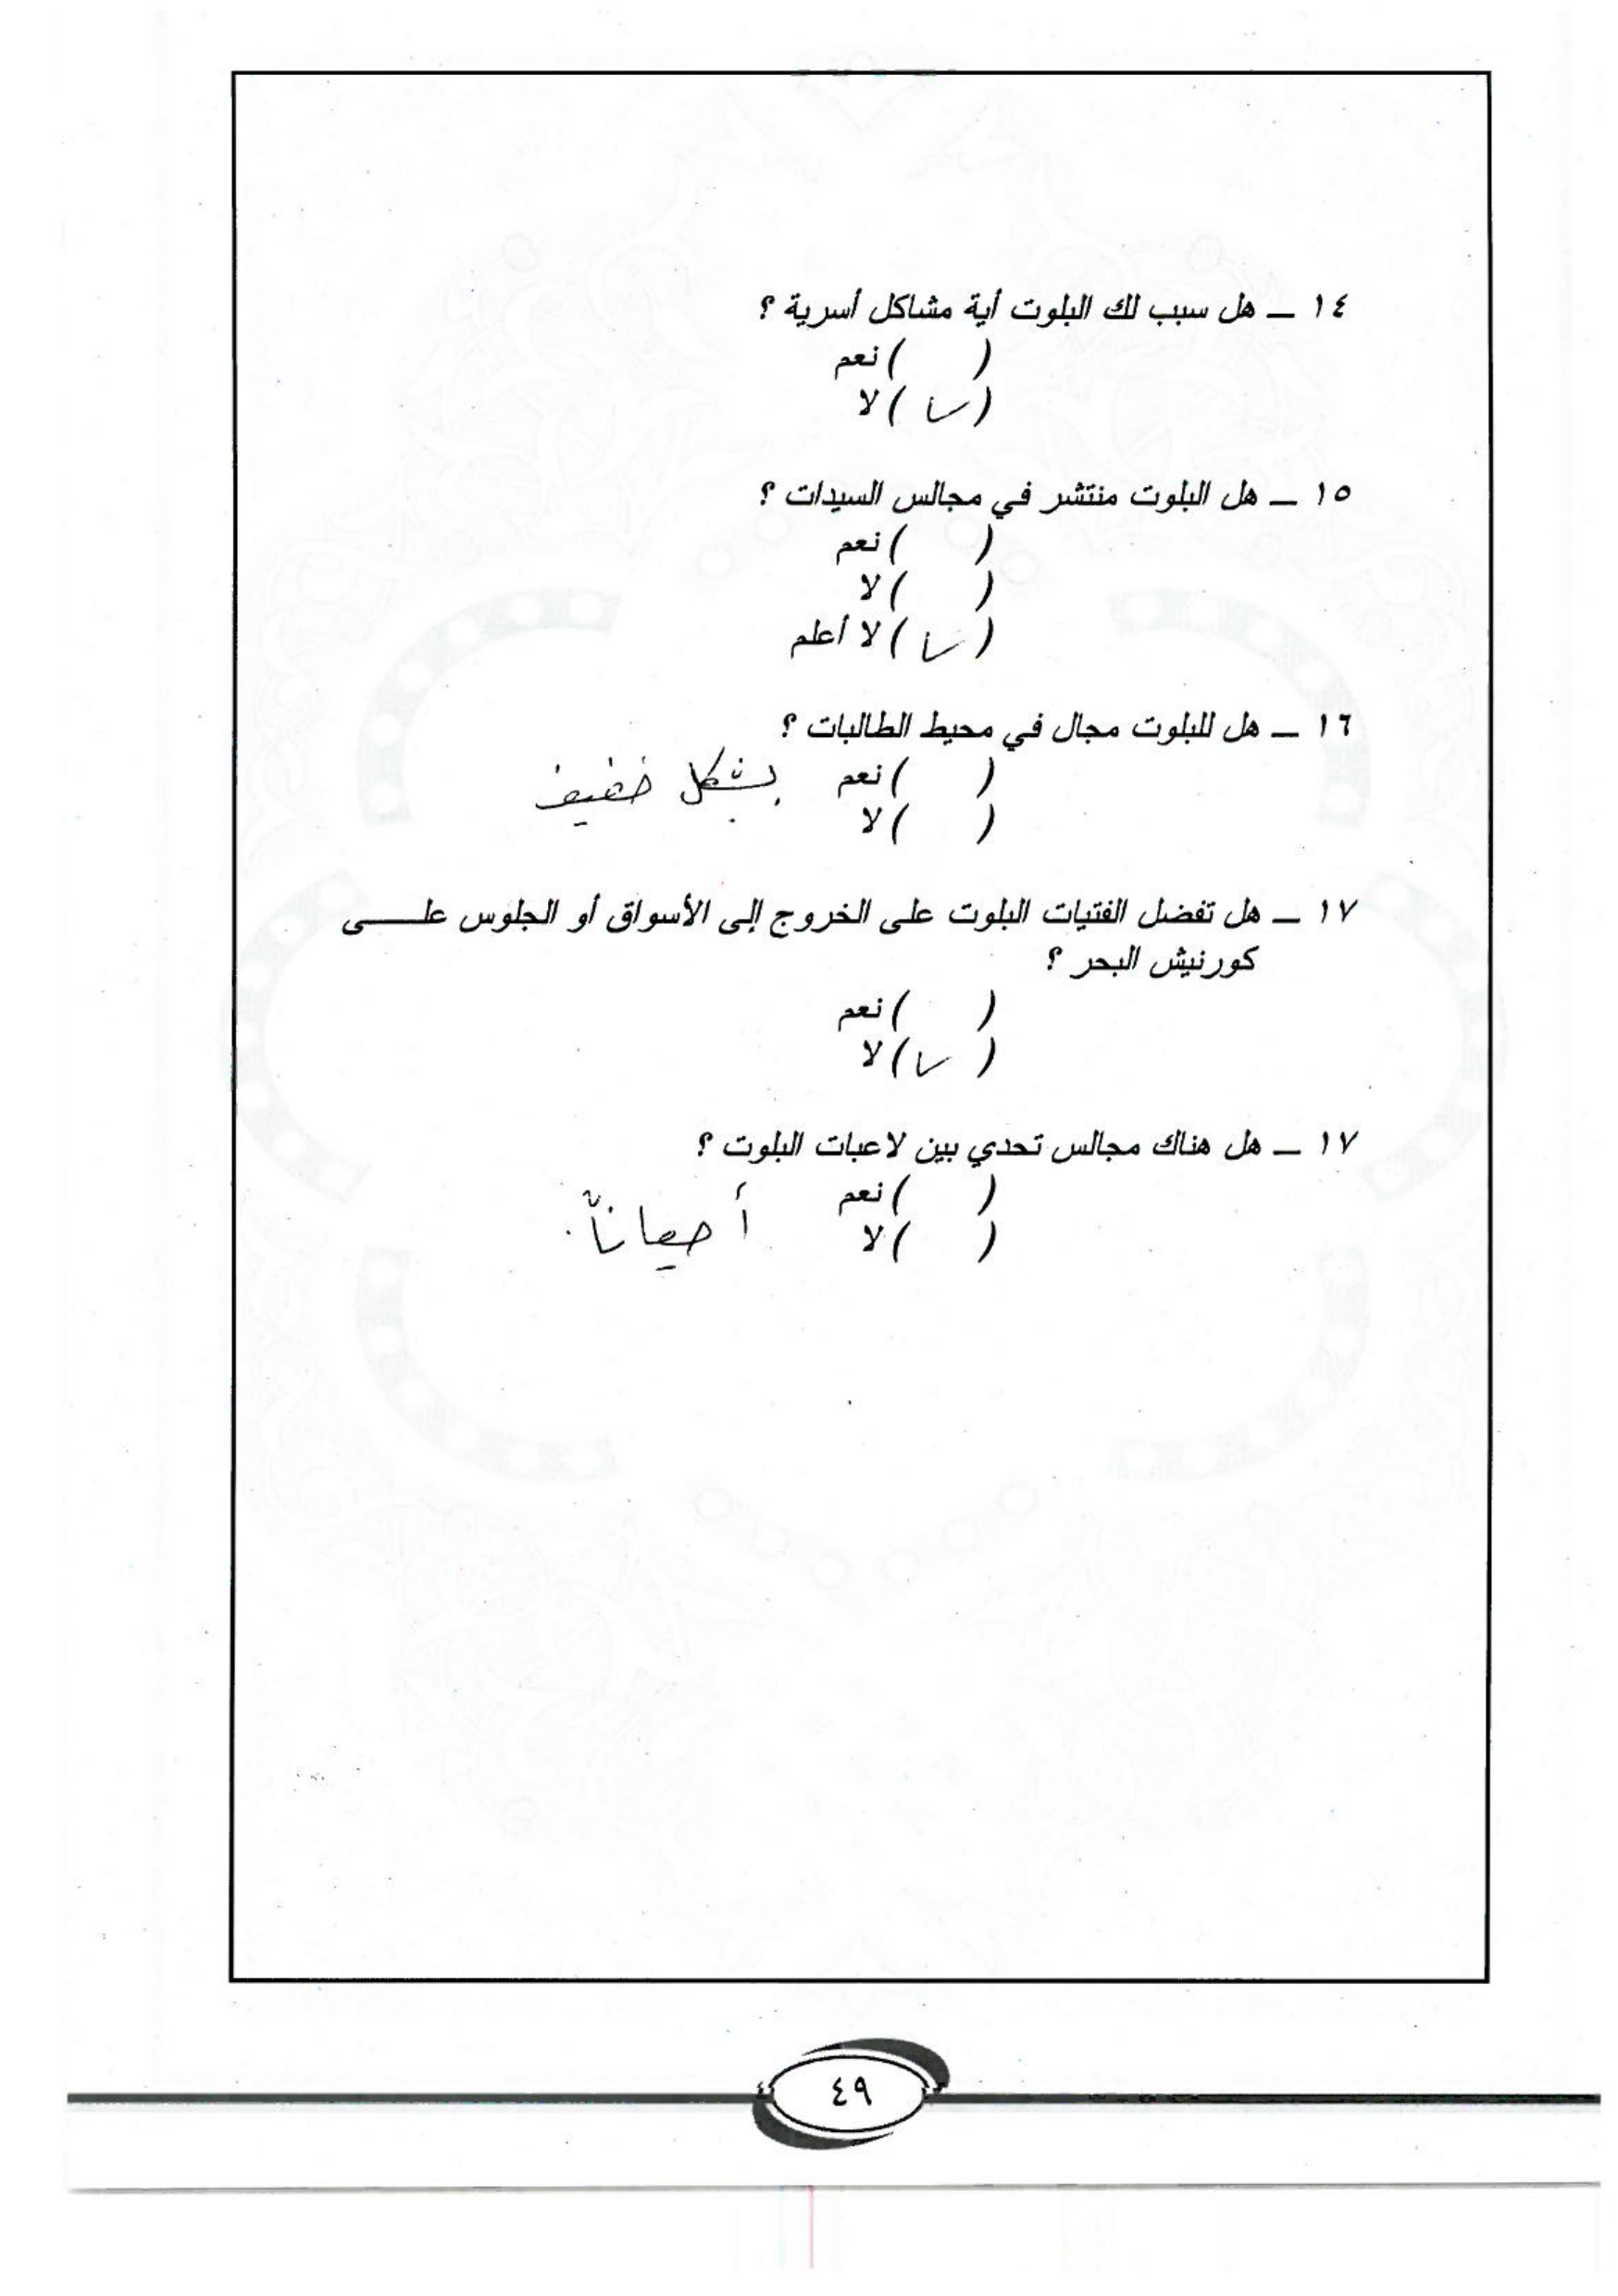 ١٤ ــ هل سبب لك البلوت أية مشاكل أسرية ؟
(     ) نعم
( ✓ ) لا
١٥ ــ هل البلوت منتشر في مجالس السيدات ؟
(     ) نعم
(     ) لا
( ✓ ) لا أعلم
١٦ ــ هل للبلوت مجال في محيط الطالبات ؟
(     ) نعم بشكل خفيف
(     ) لا
١٧ ــ هل تفضل الفتيات البلوت على الخروج إلى الأسواق أو الجلوس على
كورنيش البحر ؟
(     ) نعم
( ✓ ) لا
١٧ ــ هل هناك مجالس تحدي بين لاعبات البلوت ؟
(     ) نعم
(     ) لا أحياناً
٤٩